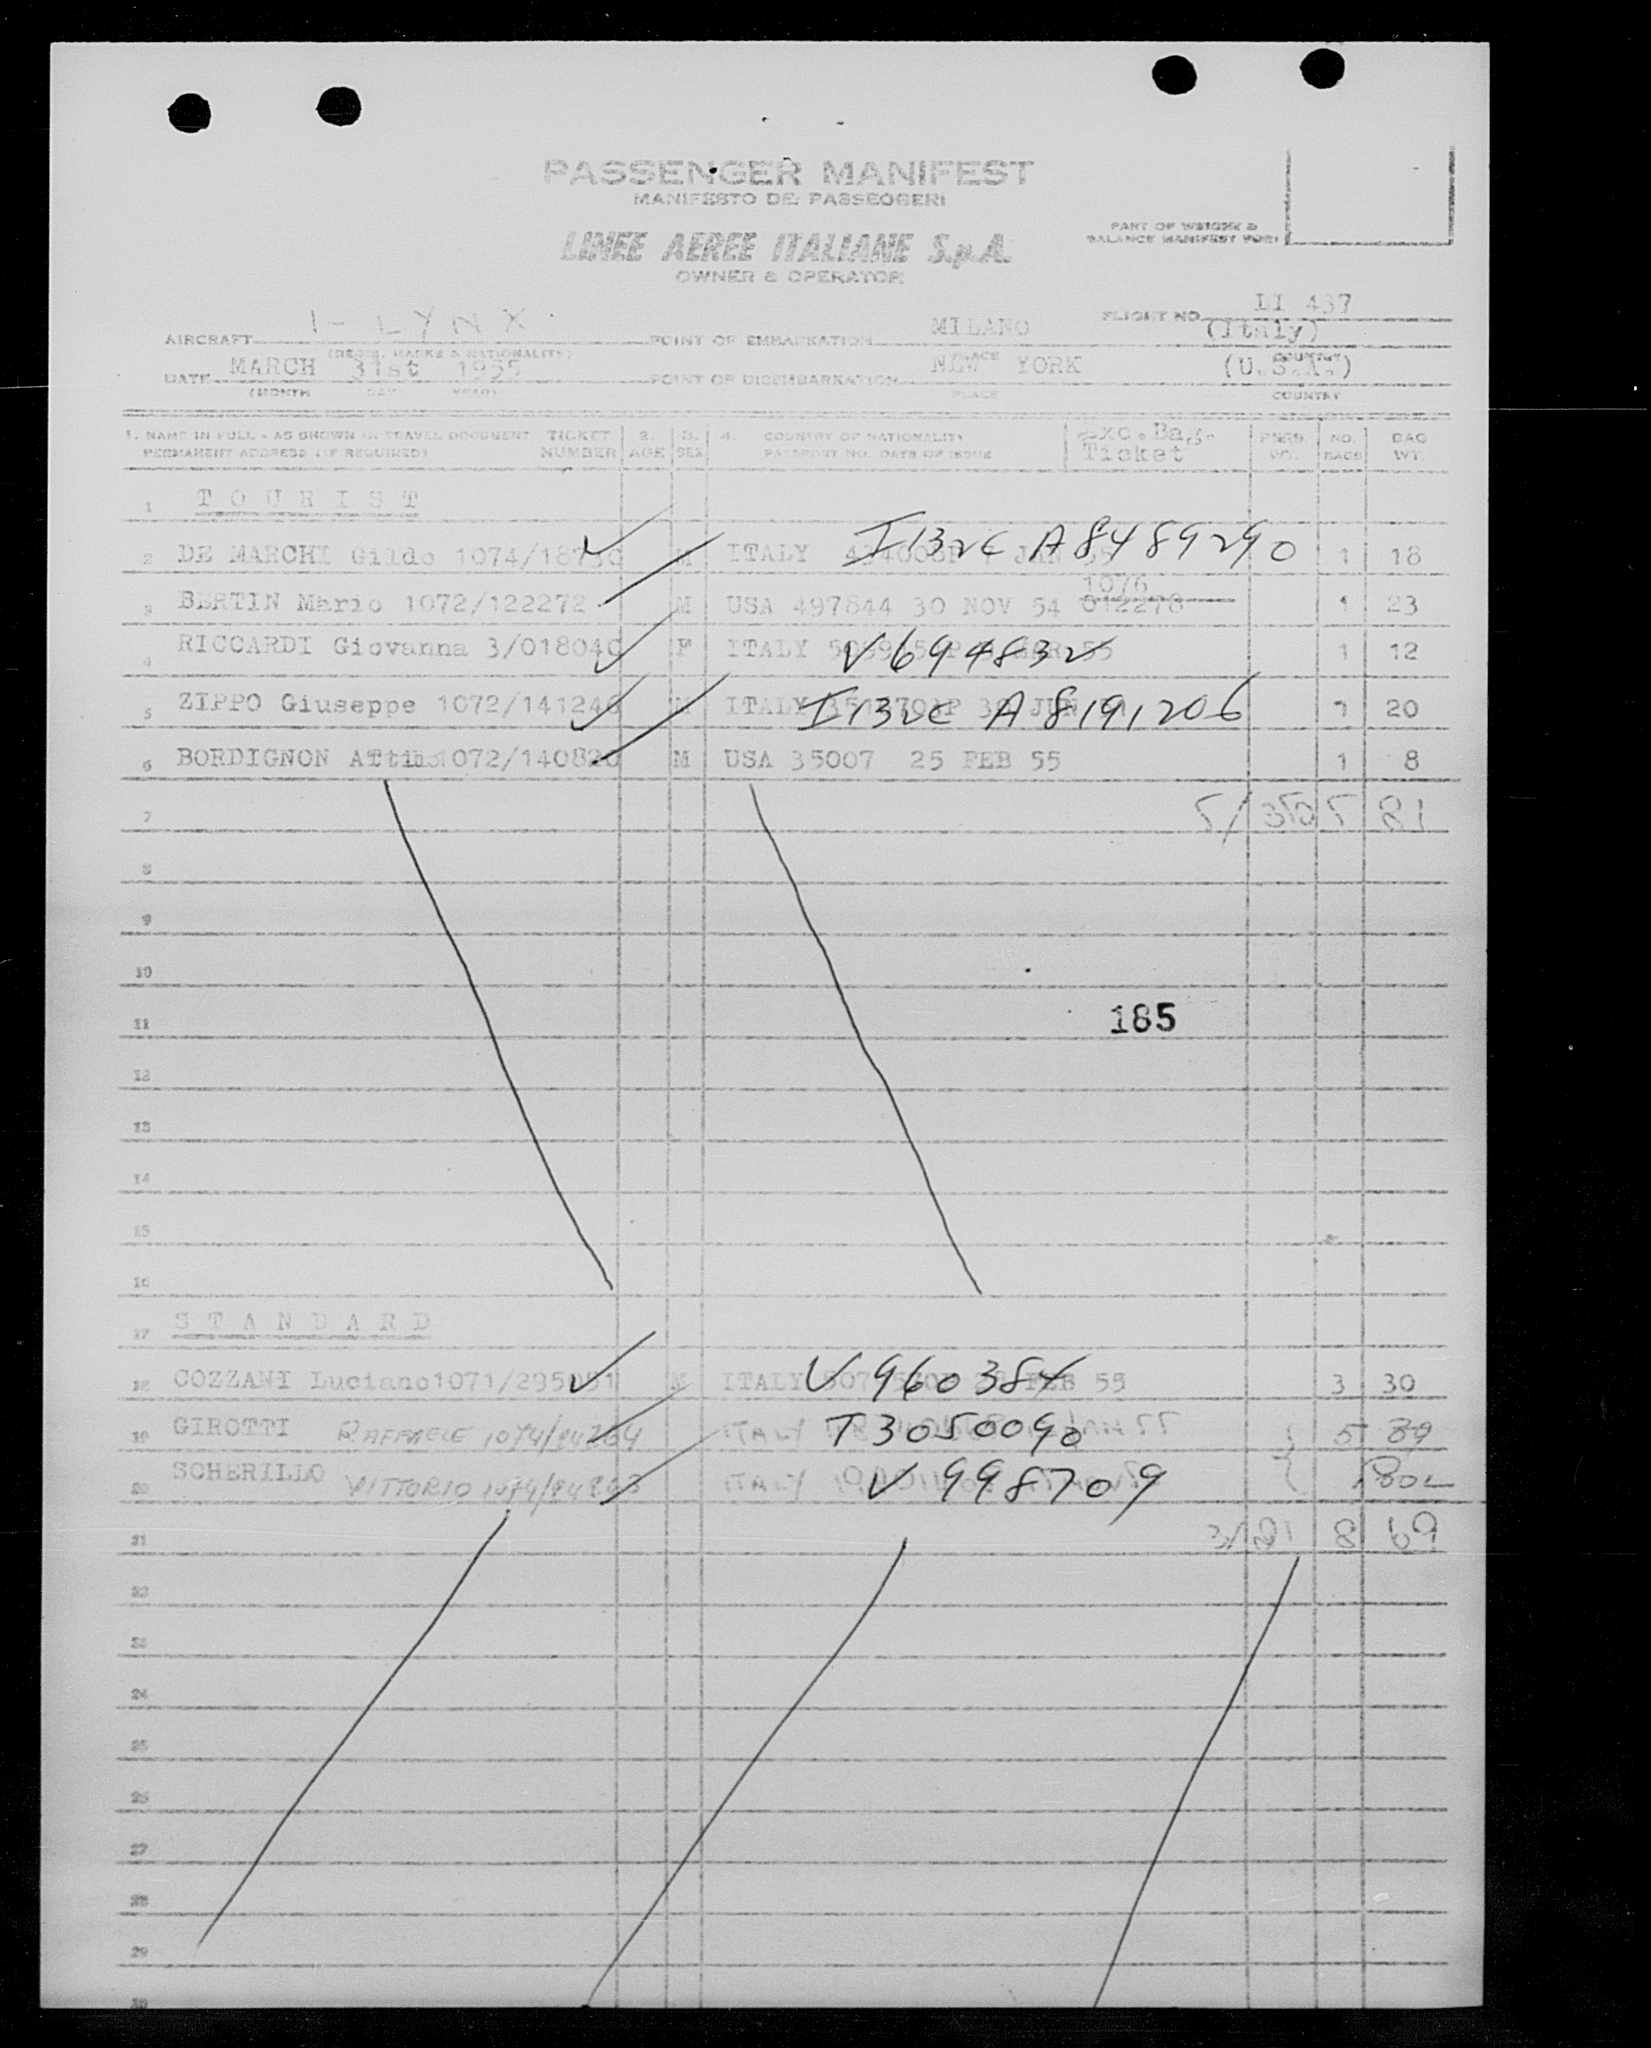 PASSENGER MANIFEST
MANIFESTO DEI PASSEGGERI
LINEE AEREE ITALIANE S.p.A.
OWNER & OPERATOR
PART OF WEIGHT &
BALANCE MANIFEST FOR:
FLIGHT NO. LI 437
AIRCRAFT I - LYNX POINT OF EMBARKATION MILANO (Italy)
(REGIS. MARKS & NATIONALITY) PLACE COUNTRY
DATE MARCH 31st 1955 POINT OF DISEMBARKATION NEW YORK (U.S.A.)
(MONTH DAY YEAR) PLACE COUNTRY
1. NAME IN FULL - AS SHOWN IN TRAVEL DOCUMENT TICKET 2. 3. 4. COUNTRY OF NATIONALITY Exc.Bag. NO. BAG
PERMANENT ADDRESS (IF REQUIRED) NUMBER AGE SEX PASSPORT NO. DATE OF ISSUE Ticket WT. BAGS WT.
1 T O U R I S T
2 DE MARCHI Gildo 1074/ M ITALY I132C A8489290 1 18
1076
3 BERTIN Mario 1072/122272 M USA 497844 30 NOV 54 012278 1 23
4 RICCARDI Giovanna 3/018040 F ITALY V694832 55 1 12
5 ZIPPO Giuseppe 1072/141240 M ITALY I132C A8191206 1 20
6 BORDIGNON 1072/140820 M USA 35007 25 FEB 55 1 8
7 5/ 5 81
8
9
10
11 185
12
13
14
15
16
17 S T A N D A R D
18 COZZANI Luciano 1071/ M ITALY V960384 FEB 55 3 30
19 GIROTTI RAFFAELE 1074/ ITALY T3050090 5 39
20 SCHERILLO VITTORIO 1074/ ITALY V998709 POOL
21 3/ 8 69
22
23
24
25
26
27
28
29
30